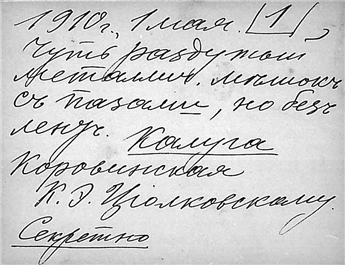 1910 г., 1 мая. 1,
Чуть раздутый
металлич. мѣшокъ
съ пазами, но безъ
лент. Калуга
Коровинская
К. Э. Ціолковскому.
Секретно